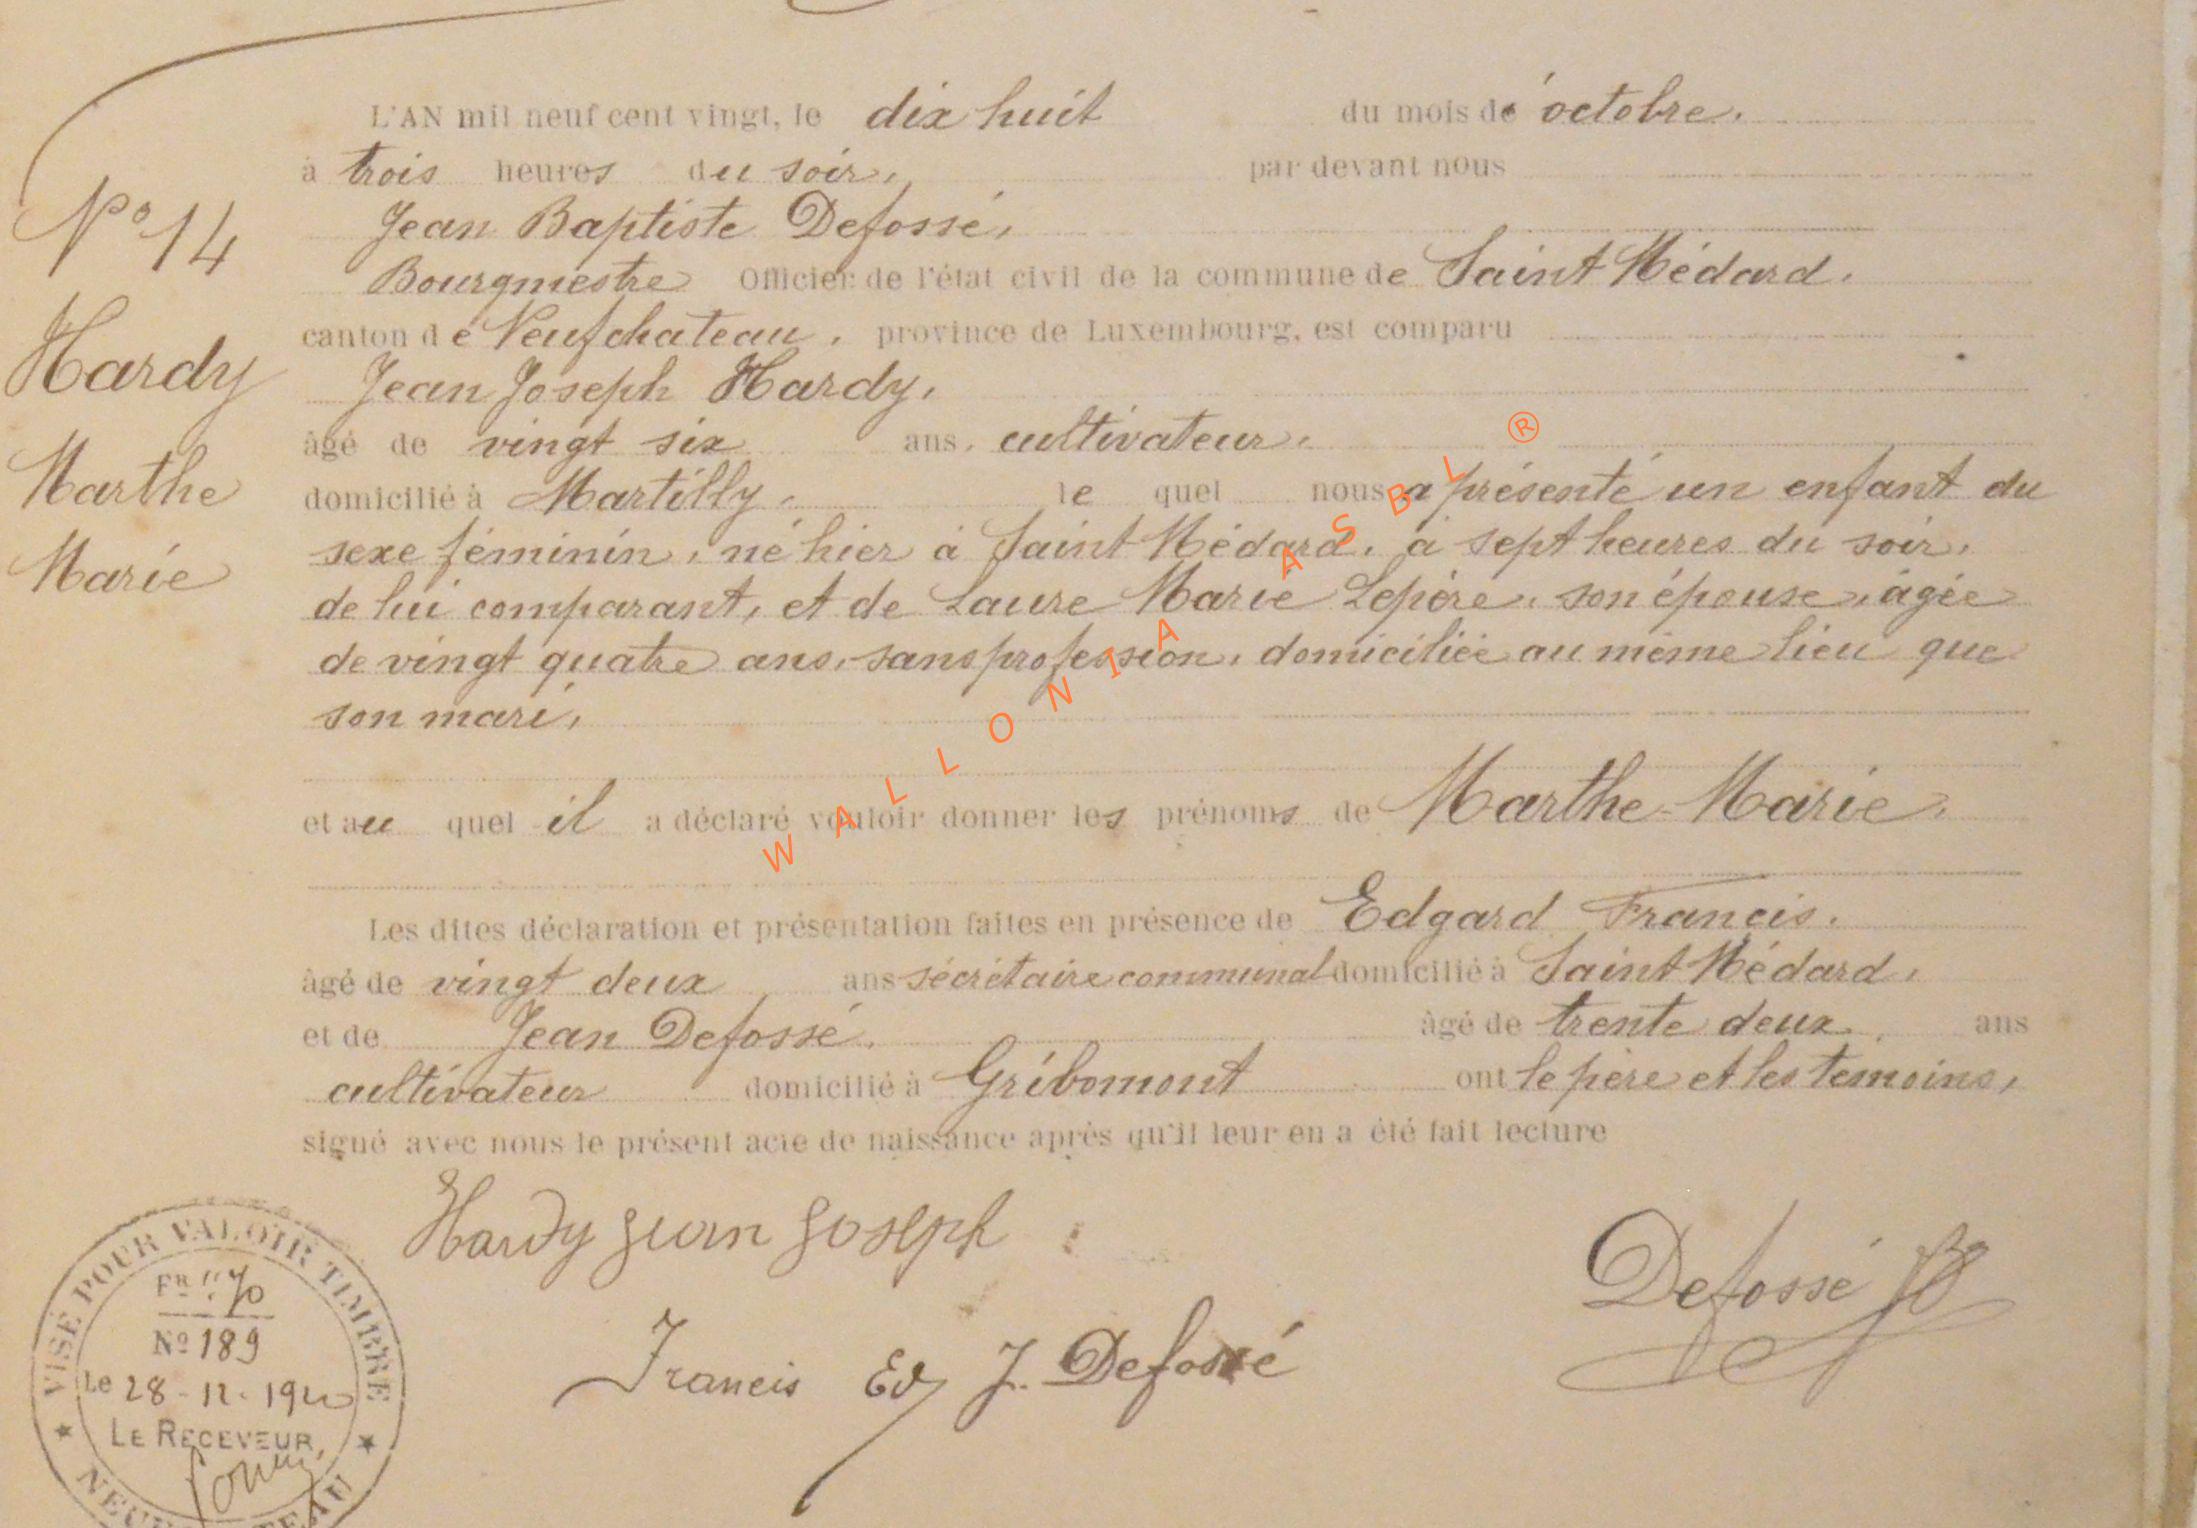 L'AN mil neuf cent vingt, le dix huit du mois de octobre.
à trois heures du soir, par devant nous
Jean Baptiste Defossé,
Bourgmestre Officier de l'état civil de la commune de Saint Médard.
canton de Neufchateau, province de Luxembourg, est comparu
Jean Joseph Hardy,
âgé de vingt six ans, cultivateur,
domicilié à Martilly, le quel nous a présenté un enfant du
sexe féminin, né hier à Saint Médard, à sept heures du soir,
de lui comparant, et de Laure Marie Lepère, son épouse, âgée
de vingt quatre ans, sans profession, domiciliée au même lieu que
son mari,
et au quel il a déclaré vouloir donner les prénoms de Marthe-Marie.
Les dites déclaration et présentation faites en présence de Edgard Francis.
âgé de vingt deux ans sécrétaire communal domicilié à Saint Médard,
et de Jean Defossé. âgé de trente deux ans
cultivateur domicilié à Gribomont ont le père et les temoins,
signé avec nous le présent acte de naissance après qu'il leur en a été fait lecture
N° 14
Hardy
Marthe
Marie
Hardy Jean Joseph
Defossé JB
Francis Ed J. Defossé
VISÉ POUR VALOIR TIMBRE
FR " 70
Nº 189
Le 28-12-1920
LE RECEVEUR,
NEUFCHATEAU
WALLONIA ASBL ®